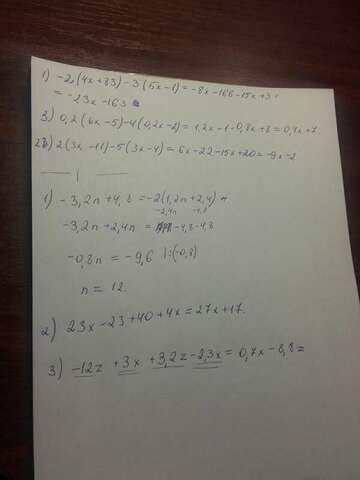 1) -2(4x+83)-3(5x-1)=-8x-166-15x+3=
=-23x-163
3) 0,2(6x-5)-4(0,2x-2)=1,2x-1-0,8x+8=0,4x+7.
2) 2(3x-11)-5(3x-4)=6x-22-15x+20=-9x-2
1) -3,2n+4,8=-2(1,2n+2,4)
-2,4n -4,8
-3,2n+2,4n = -4,8-4,8
-0,8n=-9,6 |:(-0,8)
n=12.
2) 23x-23+40+4x=27x+17.
3) -12z+3x+3,2z-2,3x=0,7x-8,8z